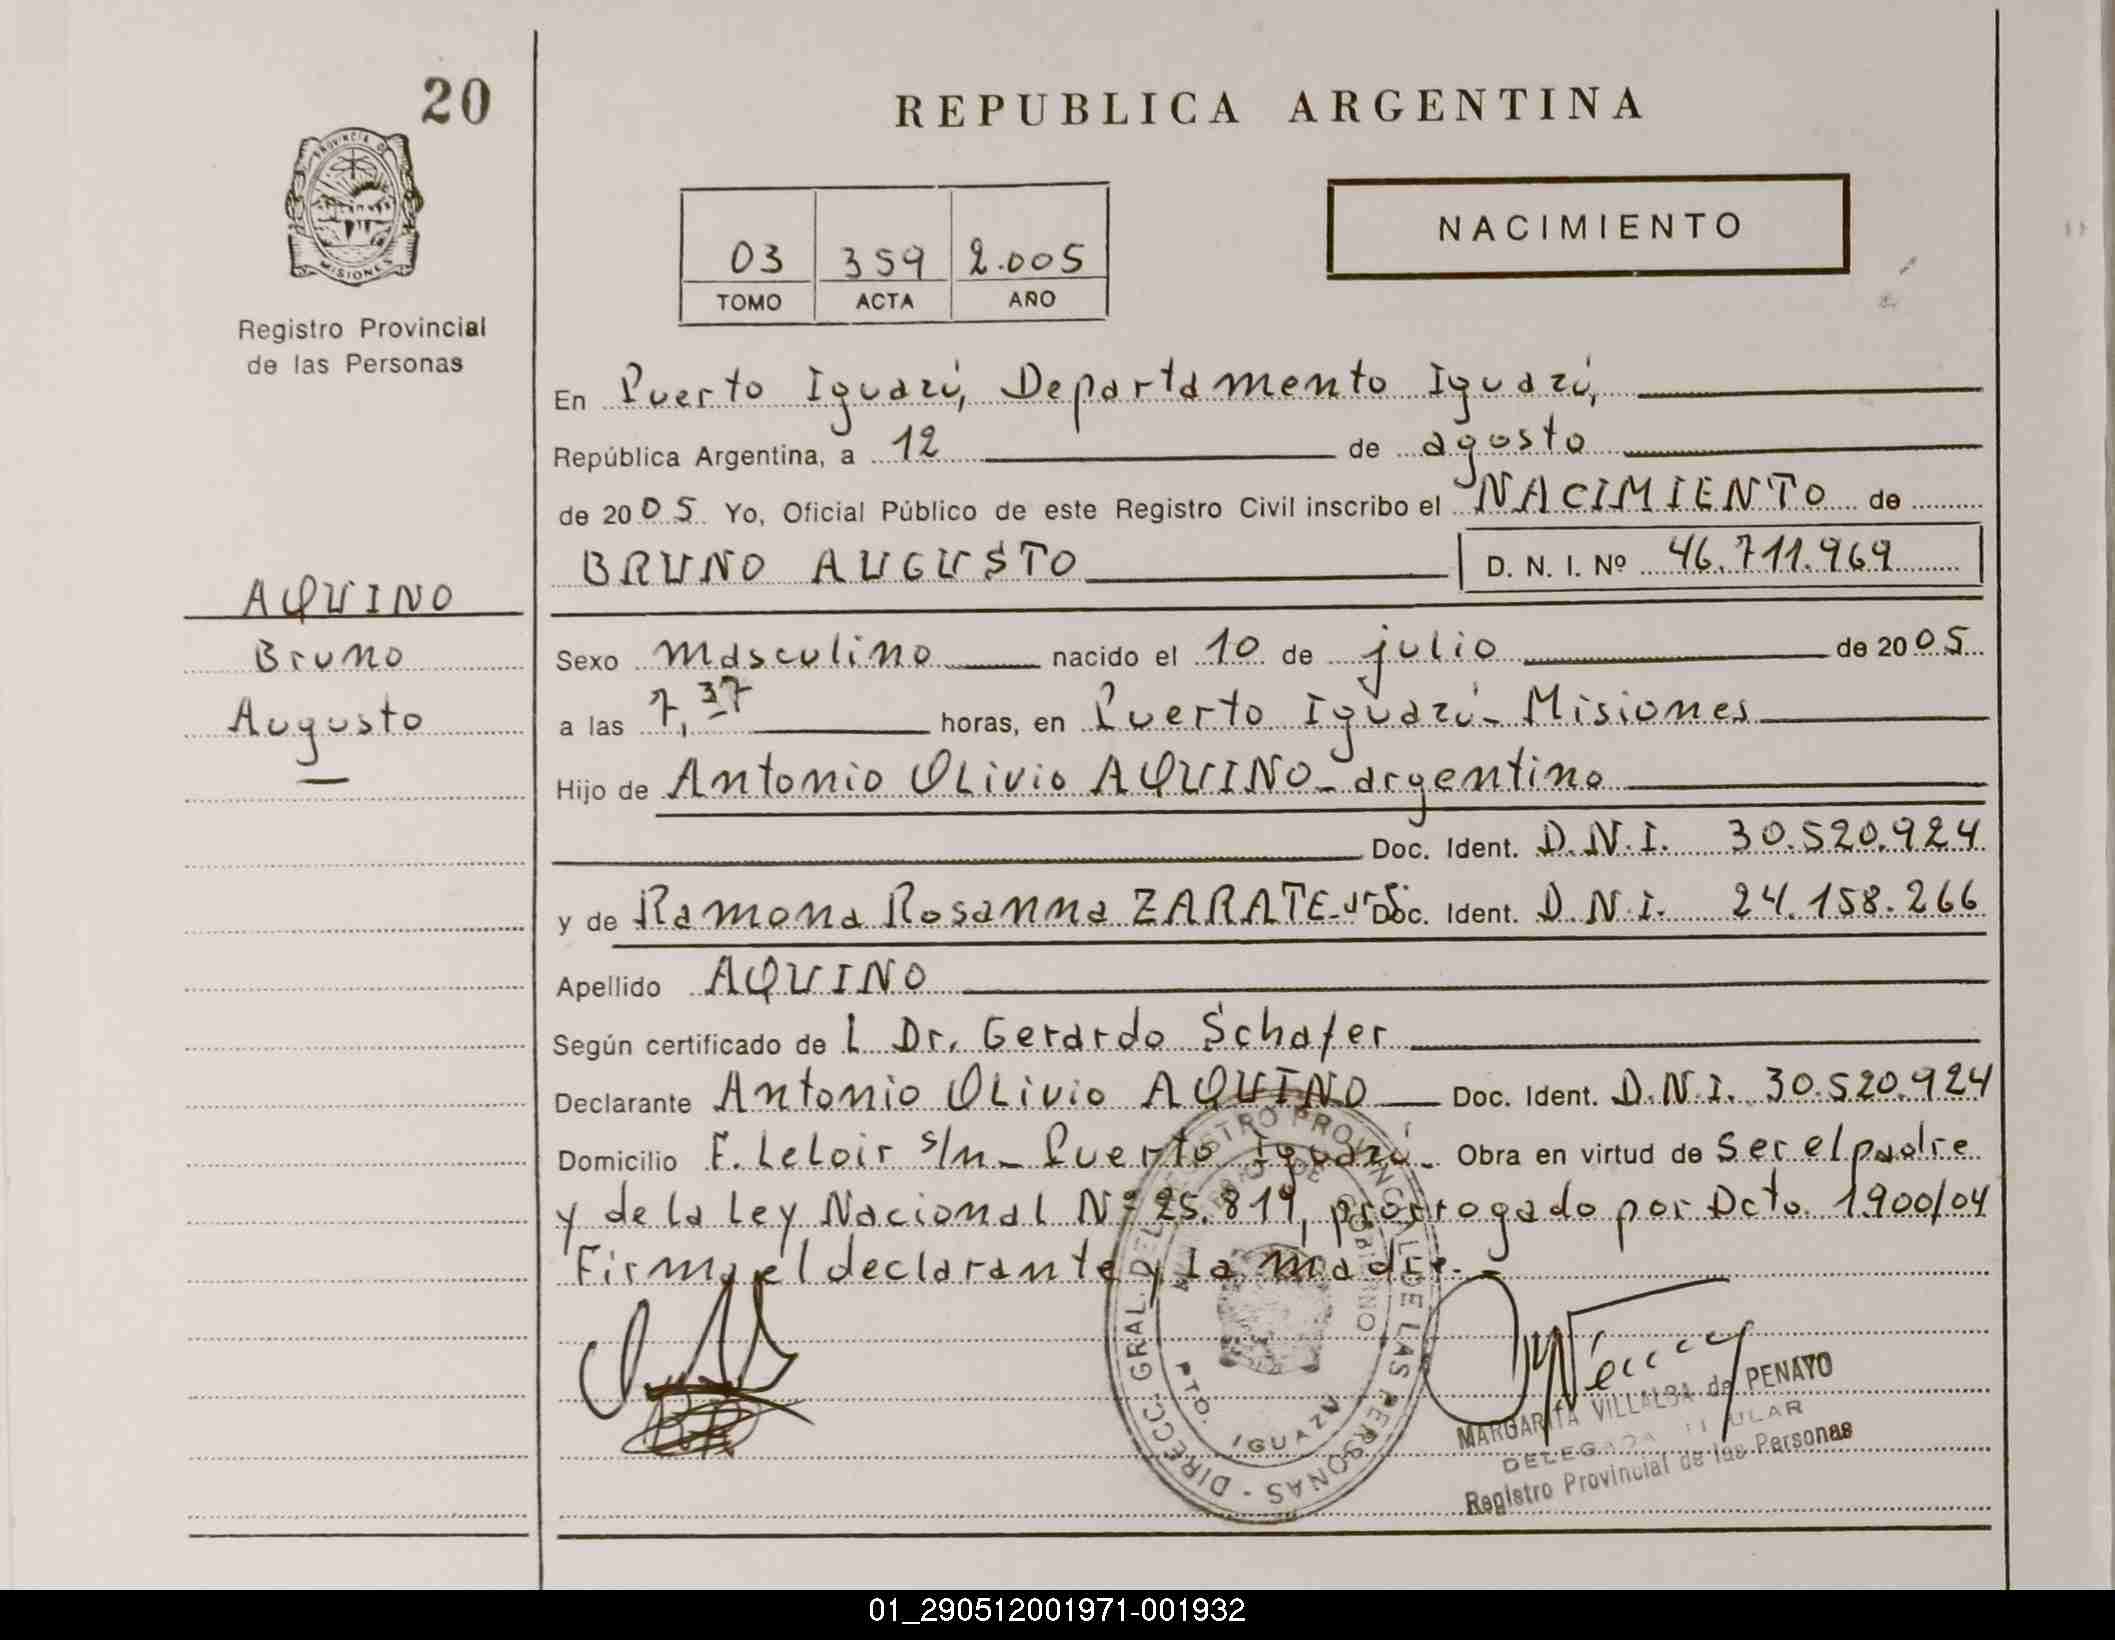 20
REPUBLICA ARGENTINA
PROVINCIA DE
MISIONES
Registro Provincial
de las Personas
03 359 2.005
TOMO ACTA AÑO
NACIMIENTO
En Puerto Iguazú, Departamento Iguazú,
República Argentina, a 12 de agosto
de 2005 Yo, Oficial Público de este Registro Civil inscribo el NACIMIENTO de
BRUNO AUGUSTO D. N. I. Nº 46.711.969
AQUINO
Bruno
Augusto
Sexo masculino nacido el 10 de julio de 2005
a las 7,37 horas, en Puerto Iguazú - Misiones
Hijo de Antonio OLivio AQUINO - argentino
Doc. Ident. D.N.I. 30.520.924
y de Ramona Rosanna ZARATE - Doc. Ident. D.N.I. 24.158.266
Apellido AQUINO
Según certificado de L Dr. Gerardo Schafer
Declarante Antonio OLivio AQUINO Doc. Ident. D.N.I. 30.520.924
Domicilio F. LeLoir s/n - Puerto Iguazú - Obra en virtud de Ser el padre
y de la Ley Nacional Nº 25.819, prorrogado por Dcto. 1900/04
Firma el declarante y la madre. -
DIRECC. GRAL. DEL REGISTRO PROVINCIAL DE LAS PERSONAS -
DE GOBIERNO
PTO. IGUAZU
MARGARITA VILLALBA de PENAYO
DELEGADA TITULAR
Registro Provincial de las Personas
01_290512001971-001932